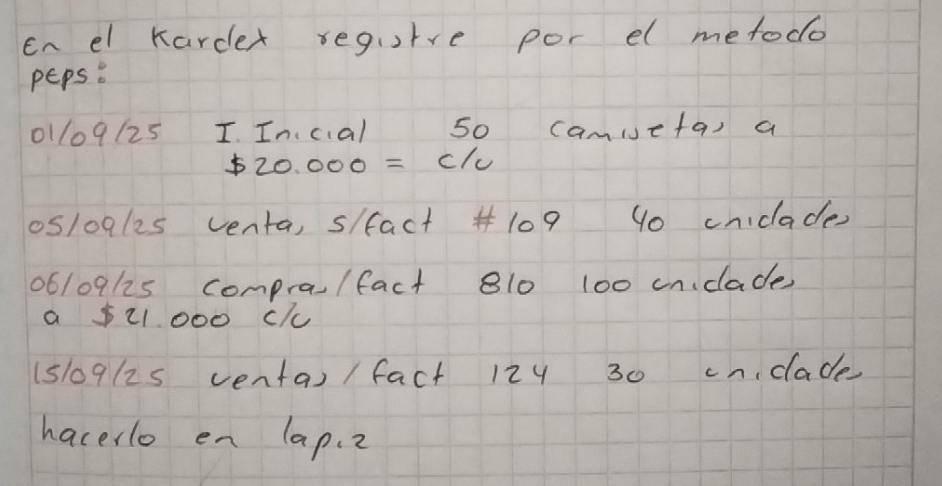 En el Kardex registre por el metodo
PEPS:
01/09/25 I. Inicial 50 camisetas a
$20.000 = c/u
05/09/25 ventas s/fact #109 40 unidades
06/09/25 compras/fact 810 100 unidades
a $21.000 c/u
15/09/25 ventas/fact 124 30 unidades
hacerlo en lapiz